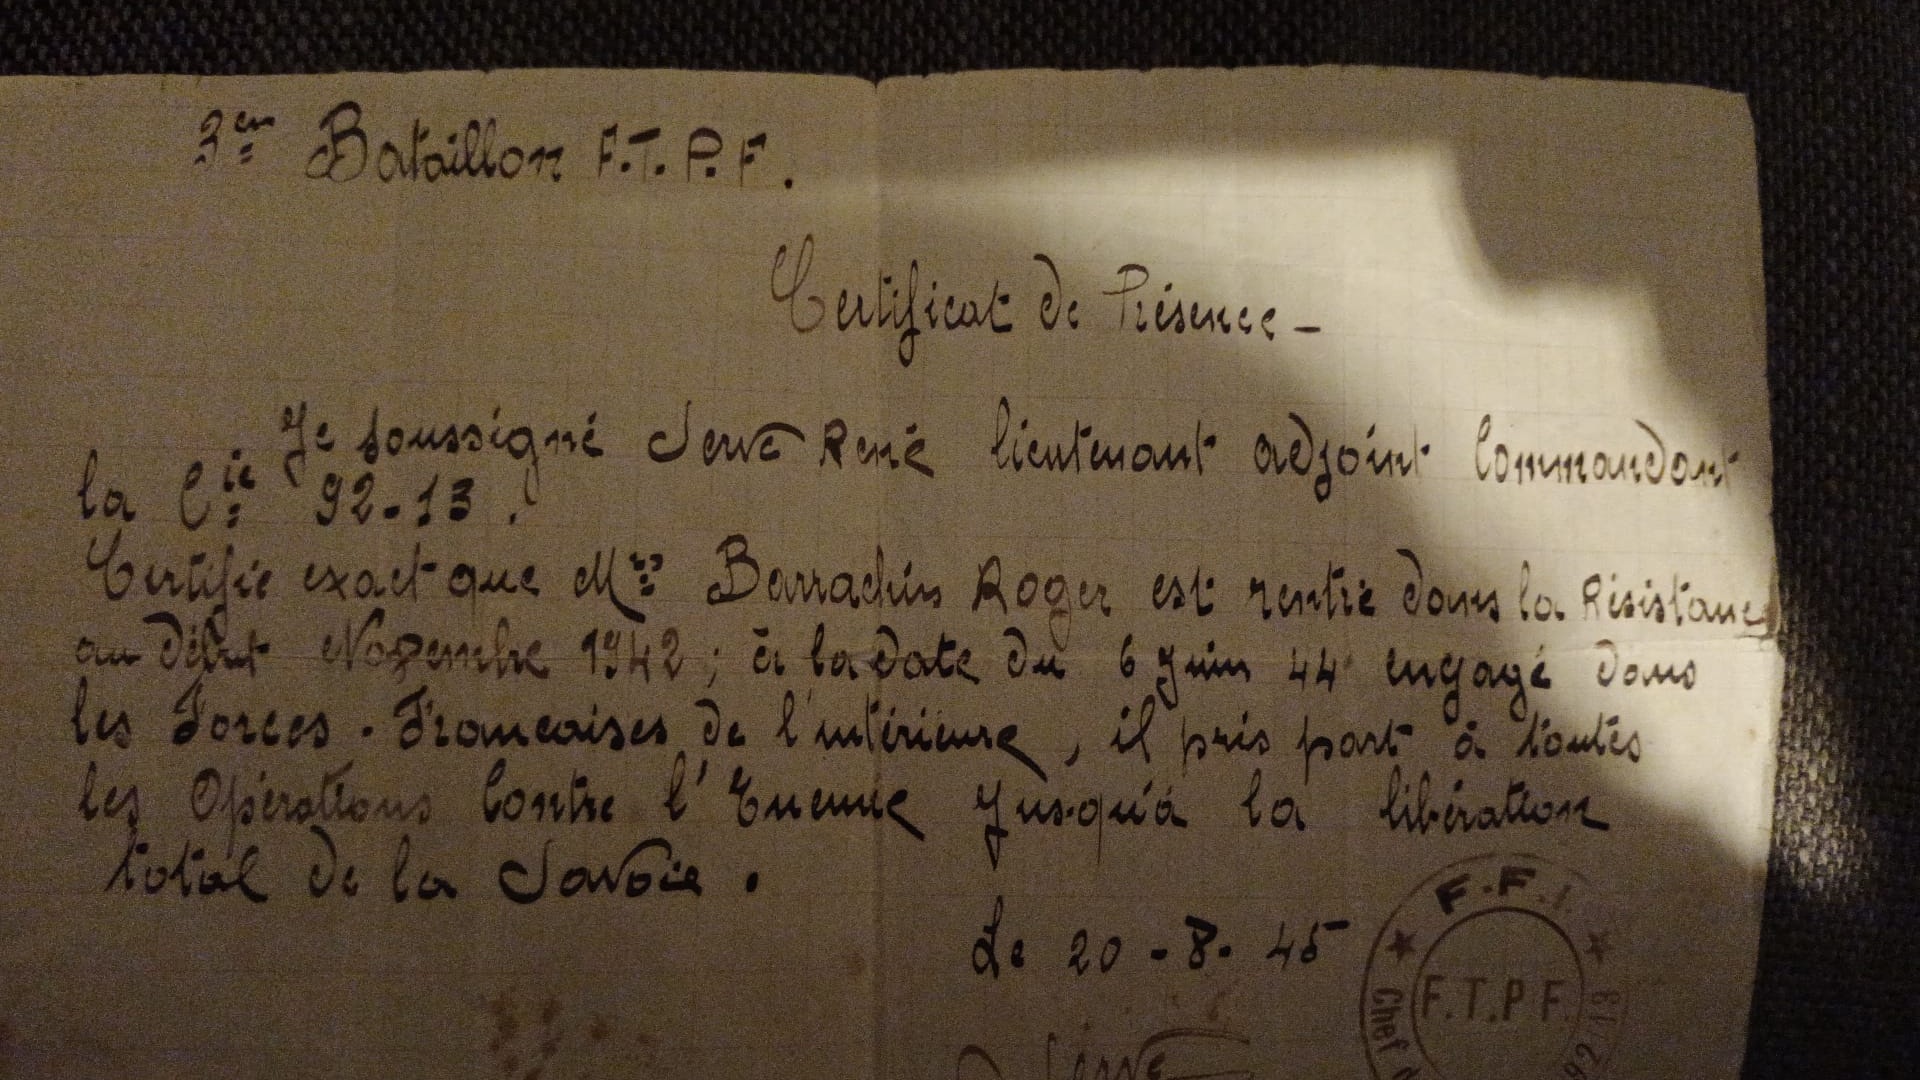 3em Bataillon F.T.P.F.
Certificat de Présence -
Je soussigné Serve René lieutenant adjoint Commandant
la Cie 92-13.
Certifie exact que Mr Barrachin Roger est rentré dans la Résistance
au début Novembre 1942 ; à la date du 6 Juin 44 engagé dans
les Forces - Francaises de l'intérieure, il pris part à toutes
les Opérations Contre l'Enemie Jusqu'à la libération
total de la Savoie.
Le 20 - 8 - 45
F.F.I.
F.T.P.F.
Chef
92 13
Serve